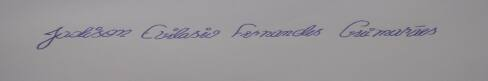 Jadison Evilasio Fernandes Guimarães